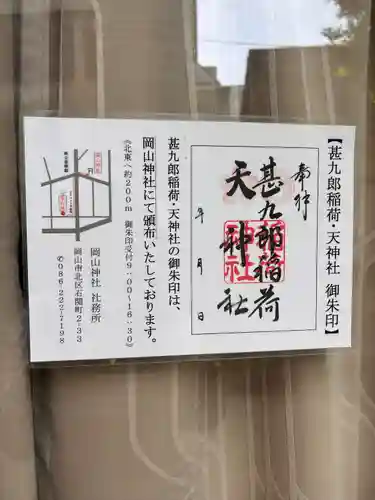 【甚九郎稲荷・天神社 御朱印】
奉拝
甚九郎稲荷
天神社
年 月 日
甚九郎稲荷・天神社の御朱印は、
岡山神社にて頒布いたしております。
《北東へ約200m 御朱印受付9:00～16:30》
岡山神社 社務所
岡山市北区石関町2-33
✆086-222-7198